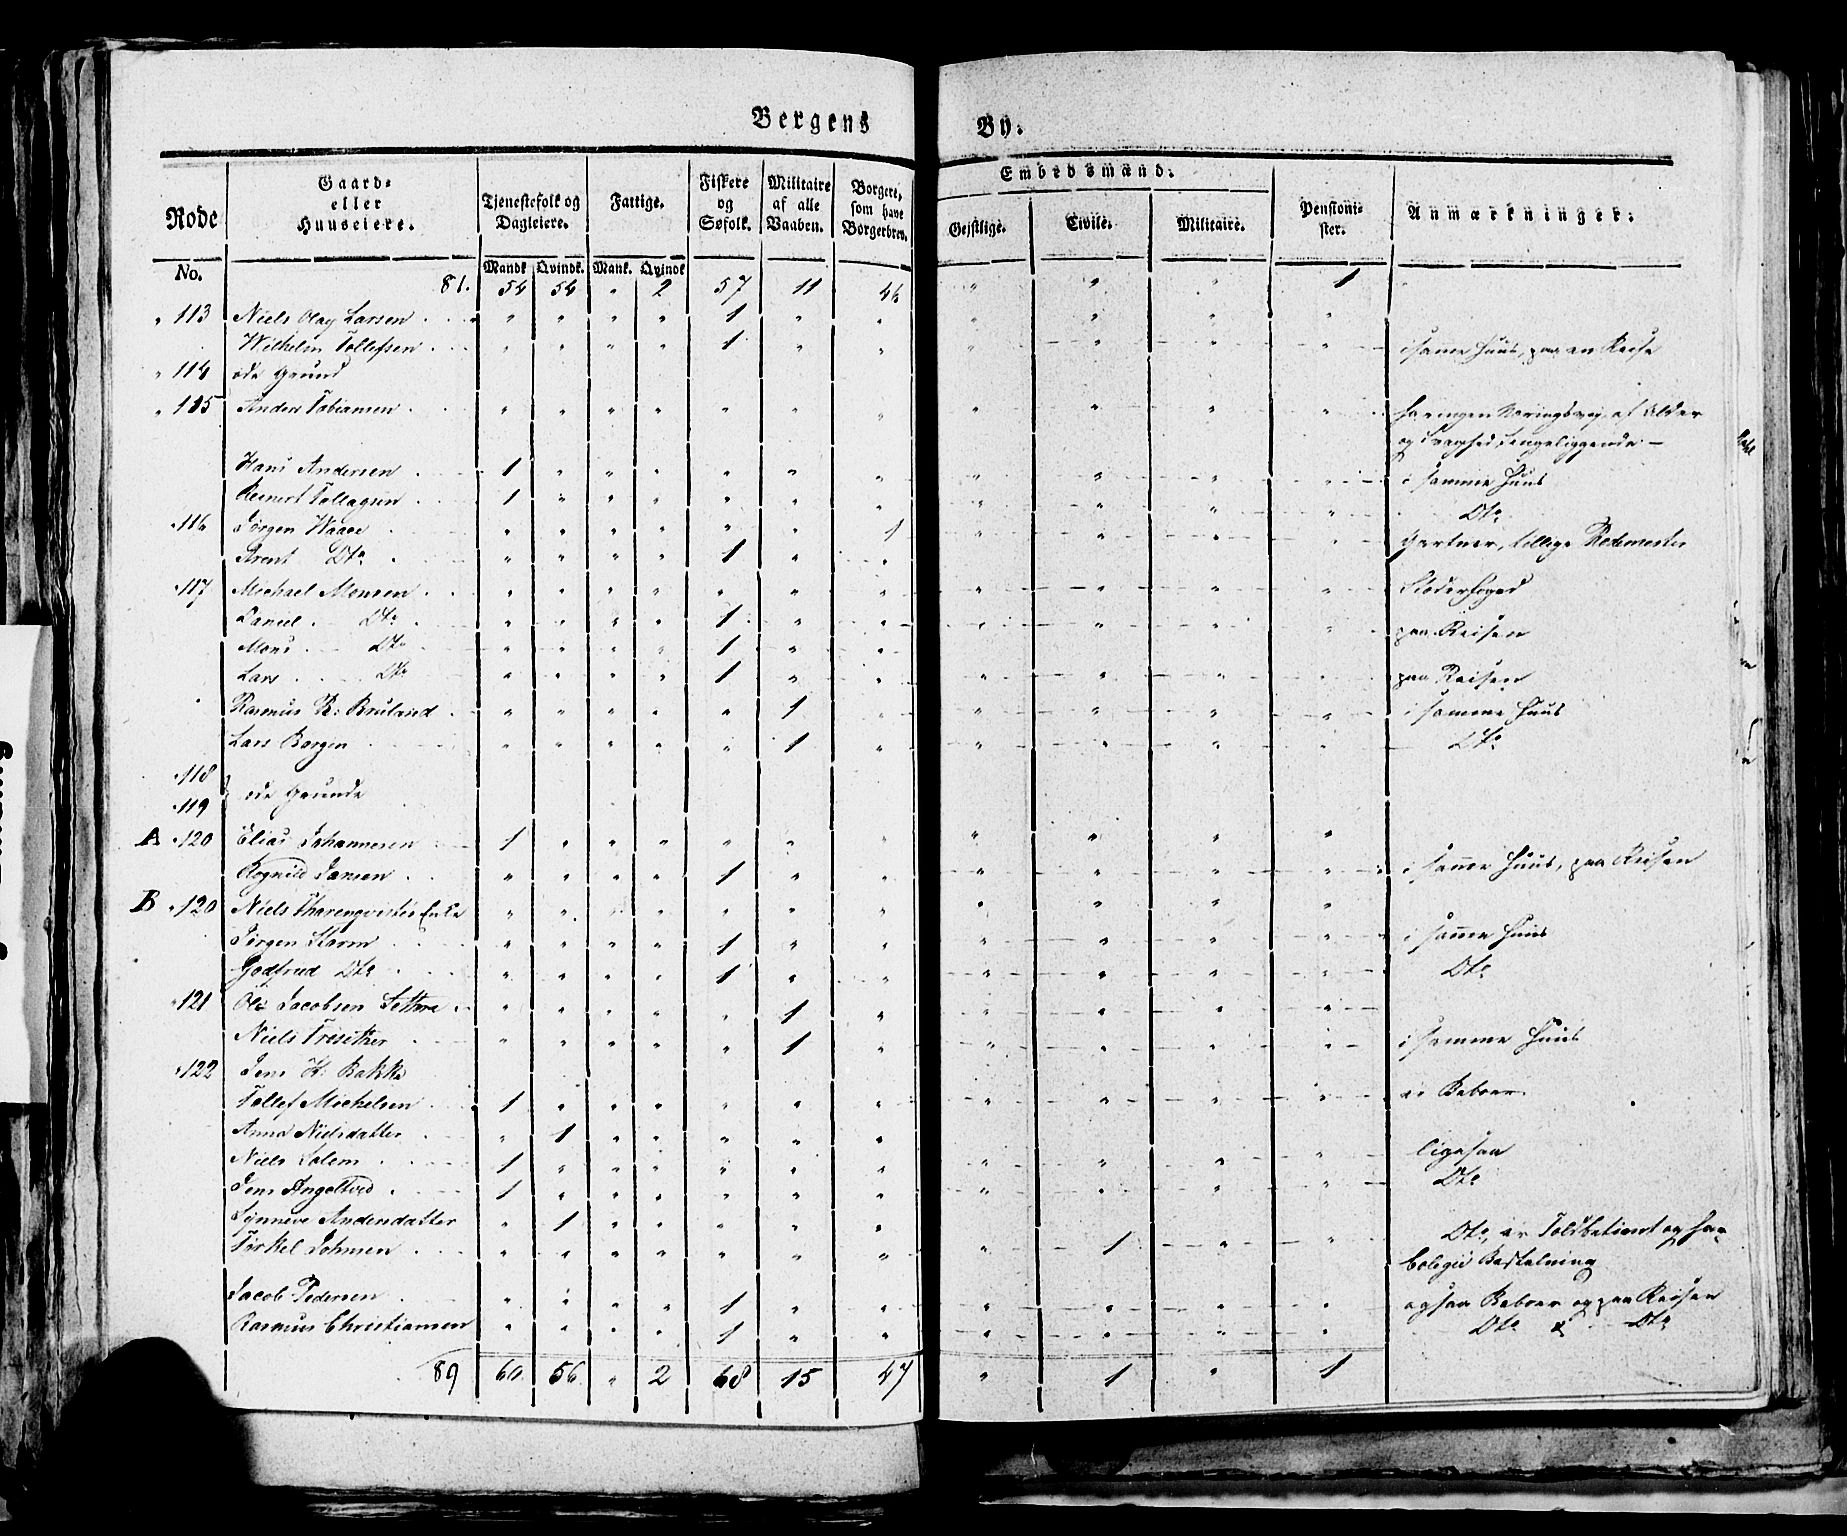 Bergens By.
Rode No. | Gaard- eller Huuseiere. | Tjenestefolk og Dagleiere. Mandk. Qvindk. | Fattige. Mank. Qvindk. | Fiskere og Søfolk. | Militaire af alle Vaaben. | Borgere, som have Borgerbrev. | Embedsmænd: Gejstlige. Civile. Militaire. | Pensionister. | Anmærkninger.
81. 54 54 " 2 57 11 46 " " " 1
" 113 Niels Olay Larsen . . . " " " " 1 " " " " " "
Wilhelm Tollefsen . " " " " 1 " " " " " " i same Huus, paa en Reise
" 114 øde Grund
" 115 Anders Tobiamsen . . " " " " " " " " " " " har ingen Næringsvej, af Alder
og Svaghed sengeliggende. —
Hans Andersen . . 1 " " " " " " " " " " i samme Huus
Reinert Tollagsen . . 1 " " " " " " " " " " Dto
" 116 Jørgen Waage . " " " " " " 1 " " " " Gartner, tillige Rodemester
Arent Dto . " " " " 1 " "
" 117 Michael Monsen . . " " " " " " " " " " "
Daniel . Dto . " " " " 1 " " " " " " paa Reisen
Mons . Dto " " " " 1 " "
Lars . . Dto " " " " 1 " " " " " " paa Reisen
Rasmus R: Bruland . " " " " " 1 " " " " " i samme Huus
Lars Borgen . . " " " " " 1 " " " " " Dto
" 118
" 119 } øde Grunde
A " 120 Elias Johannesen . 1 " " " " " " " " " "
Rognild Jansen . . " " " " 1 " " " " " " i same Huus, paa Reisen
B " 120 Niels Tharenqvistes Enke " " " " " " " " " " "
Jørgen Storm . . " " " " 1 " " " " " " i same Huus
Godtfried Dto . " " " " 1 " " " " " " Dto
" 121 Ole Jacobsen Settere . " " " " " 1 " " " " "
Niels Fresether . " " " " " 1 " " " " " i samme Huus
" 122 Jens H: Bakke
Tollef Michelsen . . 1 " " " " " " " " " " er Beboer
Anna Nielsdatter . " 1 " " " " "
Niels Solem . . . 1 " " " " " " " " " " ligesaa
Jens Angeltved . . 1 " " " " " " " " " " Dto
Synneve Andersdatter " 1 " " " " "
Torkel Johnsen . . " " " " " " " " 1 " " Dto, er Toldbetient og har
Colegii Bestalning
Jacob Pedersen . . " " " " 1 " " " " " " ogsaa Beboer og paa Reisen
Rasmus Christiansen " " " " 1 " " " " " " Dto & Dto
89 60 56 " 2 68 15 47 " 1 " 1